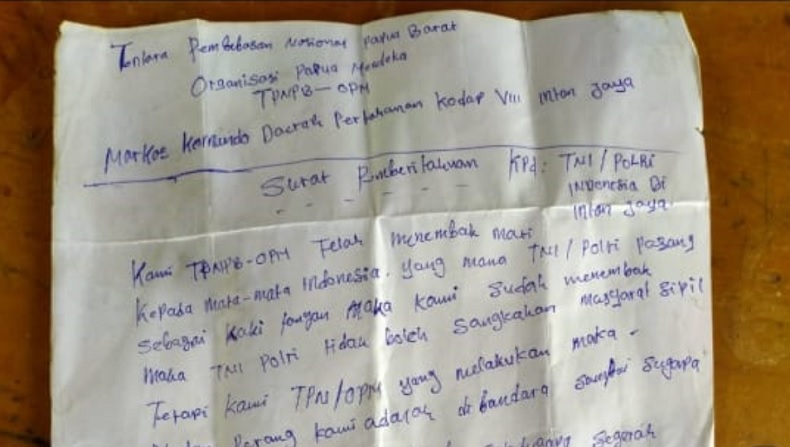 Tentara Pembebasan Nasional Papua Barat
Organisasi Papua Merdeka
TPNPB-OPM
Markas Komando Daerah Pertahanan Kodap VIII Intan Jaya
Surat Pemberitahuan Kpd: TNI/POLRI
Indonesia Di
Intan Jaya.
Kami TPNPB-OPM Telah menembak mati
Kepada mata-mata Indonesia. yang mana TNI/Polri pasang
sebagai kaki tangan Maka kami sudah menembak
maka TNI Polri tidak boleh sangkahan masyarat sipil
Tetapi kami TPN/OPM yang melakukan maka-
perang kami adalah di bandara Sugapa
Segerah